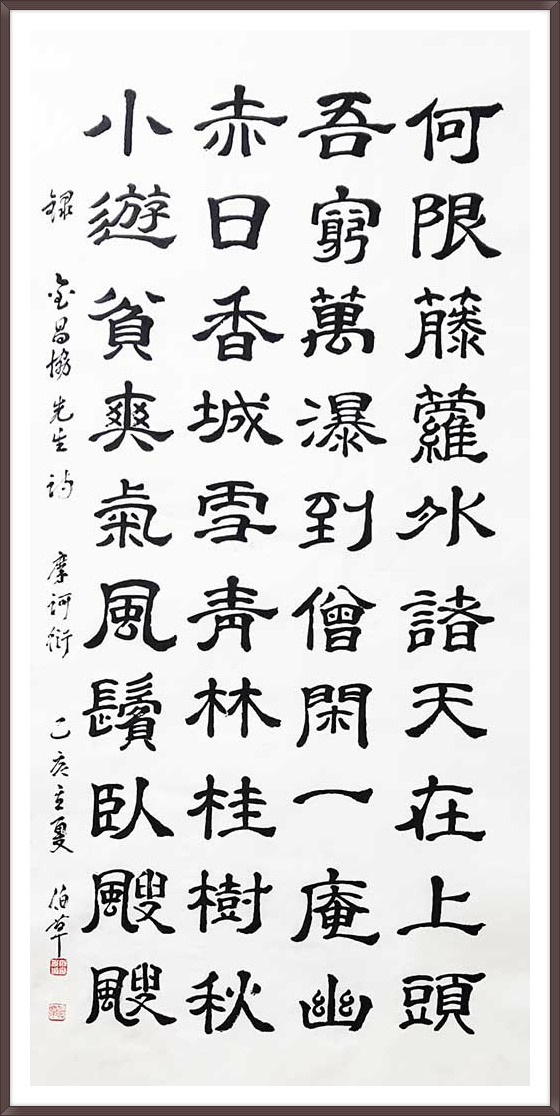 何限藤蘿外諸天在上頭
吾窮萬瀑到僧閑一庵幽
赤日香城雪青林桂樹秋
小遊貧爽氣風鬢臥颼颼
錄 金昌協先生詩 摩訶衍 己亥立夏 伯草